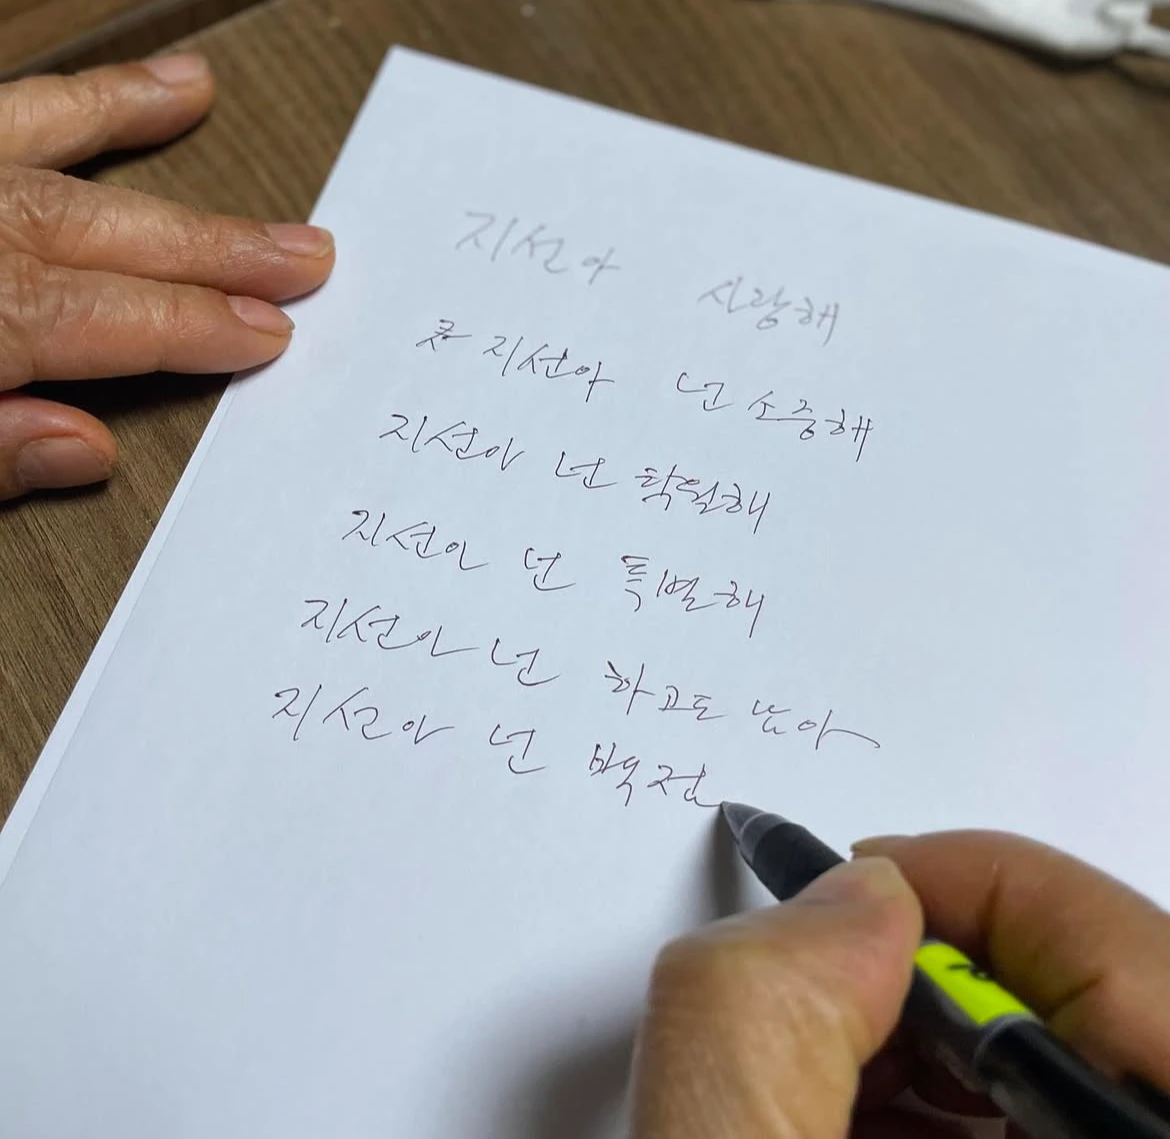 지선아 사랑해
지선아 넌 소중해
지선아 넌 탁월해
지선아 넌 특별해
지선아 넌 하고도 남아
지선아 넌 백점